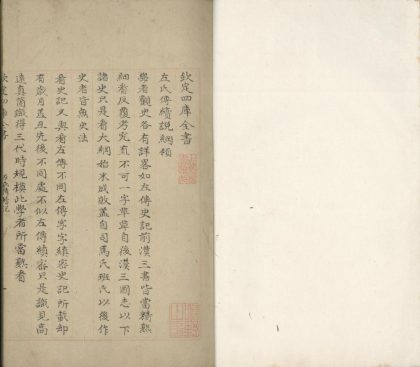 欽定四庫全書
左氏傳續說綱領
學者觀史各有詳畧如左傳史記前漢三書皆當精熟
細看反覆考究直不可一字草草自後漢三國志以下
諸史只是看大綱始末成敗蓋自司馬氏班氏以後作
史者皆無史法
看史記又與看左傳不同左傳字字縝密史記所載却
有歲月差互先後不同處不似左傳縝密只是識見高
遠真箇識得三代時規模此學者所當熟看
欽定四庫全書